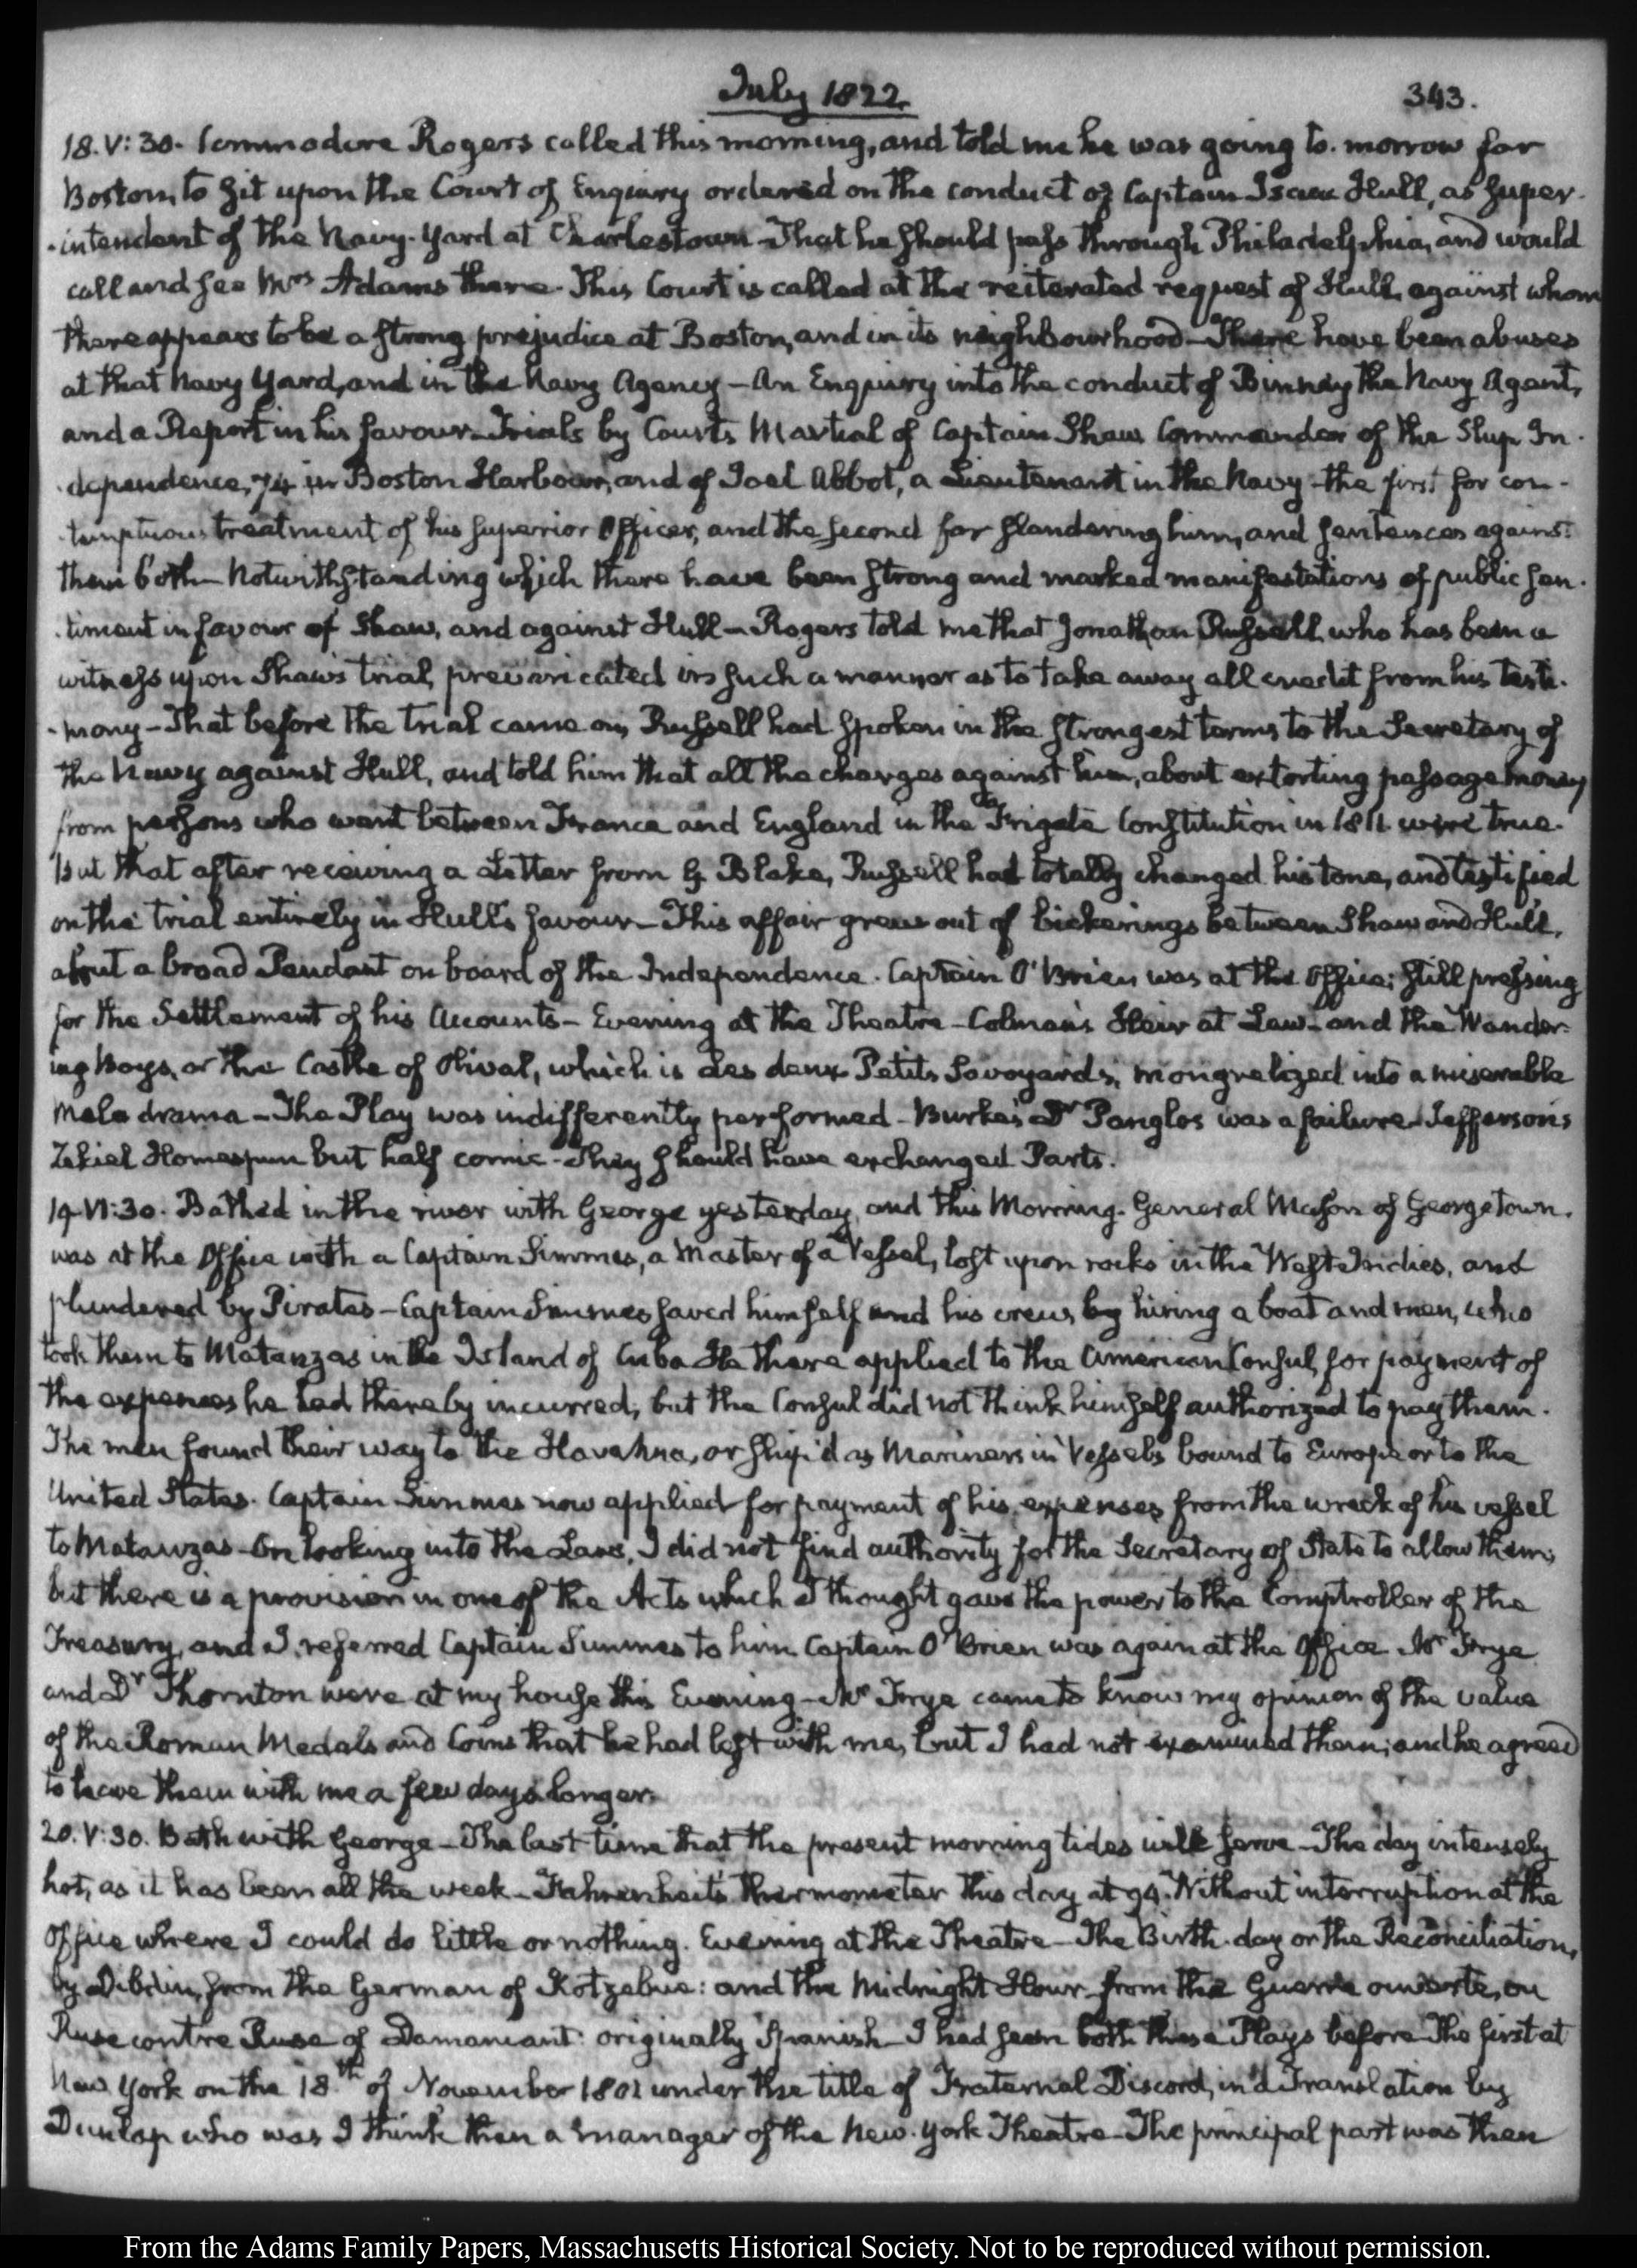 July 1822.
343.
18. V: 30. Commodore Rogers called this morning, and told me he was going to-morrow for
Boston, to sit upon the Court of Enquiry ordered on the conduct of Captain Isaac Hull, as Super-
-intendent of the Navy-Yard at Charlestown - That he should pass through Philadelphia, and would
call and see Mrs Adams there. This Court is called at the reiterated request of Hull, against whom
there appears to be a strong prejudice at Boston, and in its neighbourhood - There have been abuses
at that Navy Yard, and in the Navy Agency - An Enquiry into the conduct of Binney the Navy Agent,
and a Report in his favour - Trials by Courts Martial of Captain Shaw Commander of the Ship In-
-dependence, 74 in Boston Harbour, and of Joel Abbot, a Lieutenant in the Navy - the first for con-
-temptuous treatment of his Superior Officer, and the second for slandering him, and sentences against
them both - Notwithstanding which there have been strong and marked manifestations of public sen-
-timent in favour of Shaw, and against Hull - Rogers told me that Jonathan Russell, who has been a
witness upon Shaw's trial, prevaricated in such a manner as to take away all credit from his testi-
-mony - That before the trial came on, Russell had spoken in the strongest terms to the Secretary of
the Navy against Hull, and told him that all the charges against him, about extorting passage money
from persons who went between France and England in the Frigate Constitution in 1811 were true.
But that after receiving a Letter from G. Blake, Russell had totally changed his tone, and testified
on the trial entirely in Hull's favour - This affair grew out of bickerings between Shaw and Hull,
about a broad Pendant on board of the Independence. Captain O'Brien was at the Office; still pressing
for the Settlement of his Accounts - Evening at the Theatre - Colman's Heir at Law - and the Wander-
ing Boys, or the Castle of Olival, which is Les deux Petits Savoyards, mongrelized into a miserable
Melo drama - The Play was indifferently performed - Burke's Dr Panglos was a failure - Jefferson's
Zekiel Homespun but half comic - They should have exchanged Parts.
19. VI: 30. Bathed in the river with George yesterday, and this Morning. General Mason of Georgetown.
was at the Office with a Captain Simmes, a Master of a Vessel, lost upon rocks in the West-Indies, and
plundered by Pirates - Captain Simmes saved himself and his crew, by hiring a boat and men, who
took them to Matanzas in the Island of Cuba He there applied to the American Consul, for payment of
the expences he had thereby incurred, but the Consul did not think himself authorized to pay them.
The men found their way to the Havanna, or ship'd as Mariners in Vessels bound to Europe or to the
United States. Captain Simmes now applied for payment of his expenses from the wreck of his vessel
to Matanzas - On looking into the Laws, I did not find authority for the Secretary of State to allow them;
but there is a provision in one of the Acts which I thought gave the power to the Comptroller of the
Treasury, and I referred Captain Simmes to him Captain O'Brien was again at the Office Mr Frye
and Dr Thornton were at my house this Evening - Mr Frye came to know my opinion of the value
of the Roman Medals and Coins that he had left with me, but I had not examined them; and he agreed
to leave them with me a few days longer.
20. V: 30. Bath with George - The last time that the present morning tides will serve - The day intensely
hot, as it has been all the week - Fahrenheit's thermometer this day at 94. Without interruption at the
Office where I could do little or nothing. Evening at the Theatre - The Birth-day or the Reconciliation,
by Dibdin, from the German of Kotzebue: and the Midnight Hour from the Guerre ouverte, ou
Ruse contre Ruse of Damaniant: originally Spanish - I had seen both these Plays before - The first at
New York on the 18.th of November 1801 under the title of Fraternal Discord, in a Translation by
Dunlap who was I think then a manager of the New-York Theatre - The principal part was then
From the Adams Family Papers, Massachusetts Historical Society. Not to be reproduced without permission.